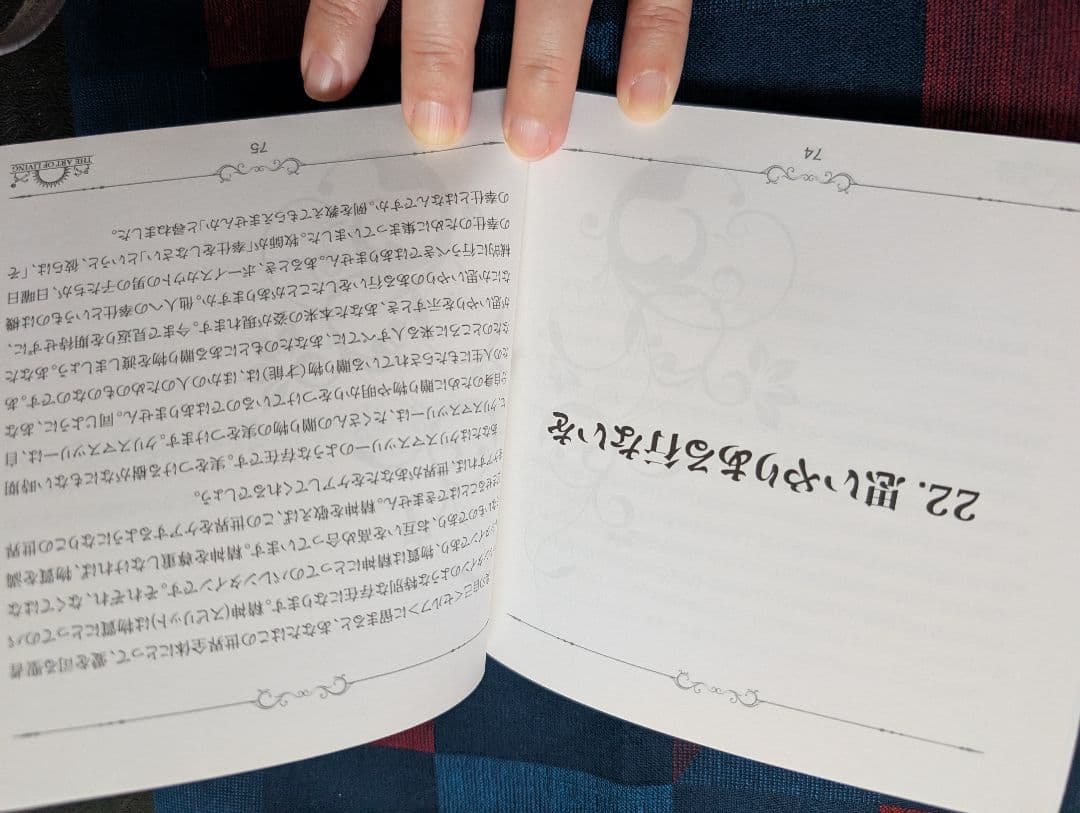 74
22. 思いやりある行ないを
の自己<セルフ>に留まると、あなたはこの世界全体にとって、愛を司る聖者
ンタインのような特別な存在になります。精神(スピリット)は物質にとってのバ
ンタインであり、物質は精神にとってのバレンタインです。それぞれ、なくてはな
ないものであり、お互いを高め合っています。精神を尊重しなければ、物質を満
させることはできません。精神を敬えば、この世界をケアするようになりこの世界
ケアすれば、世界があなたをケアしてくれるでしょう。
あなたはクリスマスツリーのような存在です。実をつける樹がなにもない時期
クリスマスツリーは、たくさんの贈り物の実をつけます。クリスマスツリーは、自
分自身のために贈り物や明かりをつけているのではありません。同じように、あなた
の人生にもたらされている贈り物(才能)は、ほかの人のためのものなのです。あ
なたのところに来る人すべてに、あなたのもとにある贈り物を渡しましょう。あなた
が思いやりを示すとき、あなた本来の姿が現れます。今まで見返りを期待せずに、
なにか思いやりのある行いをしたことがありますか。他人への奉仕というものは機
械的に行うべきではありません。あるとき、ボーイスカウトの男の子たちが、日曜日
の奉仕のために集まっていました。牧師が「奉仕をしなさい」というと、彼らは、「そ
の奉仕とはなんですか。例を教えてもらえませんか」と尋ねました。
75
THE ART OF LIVING